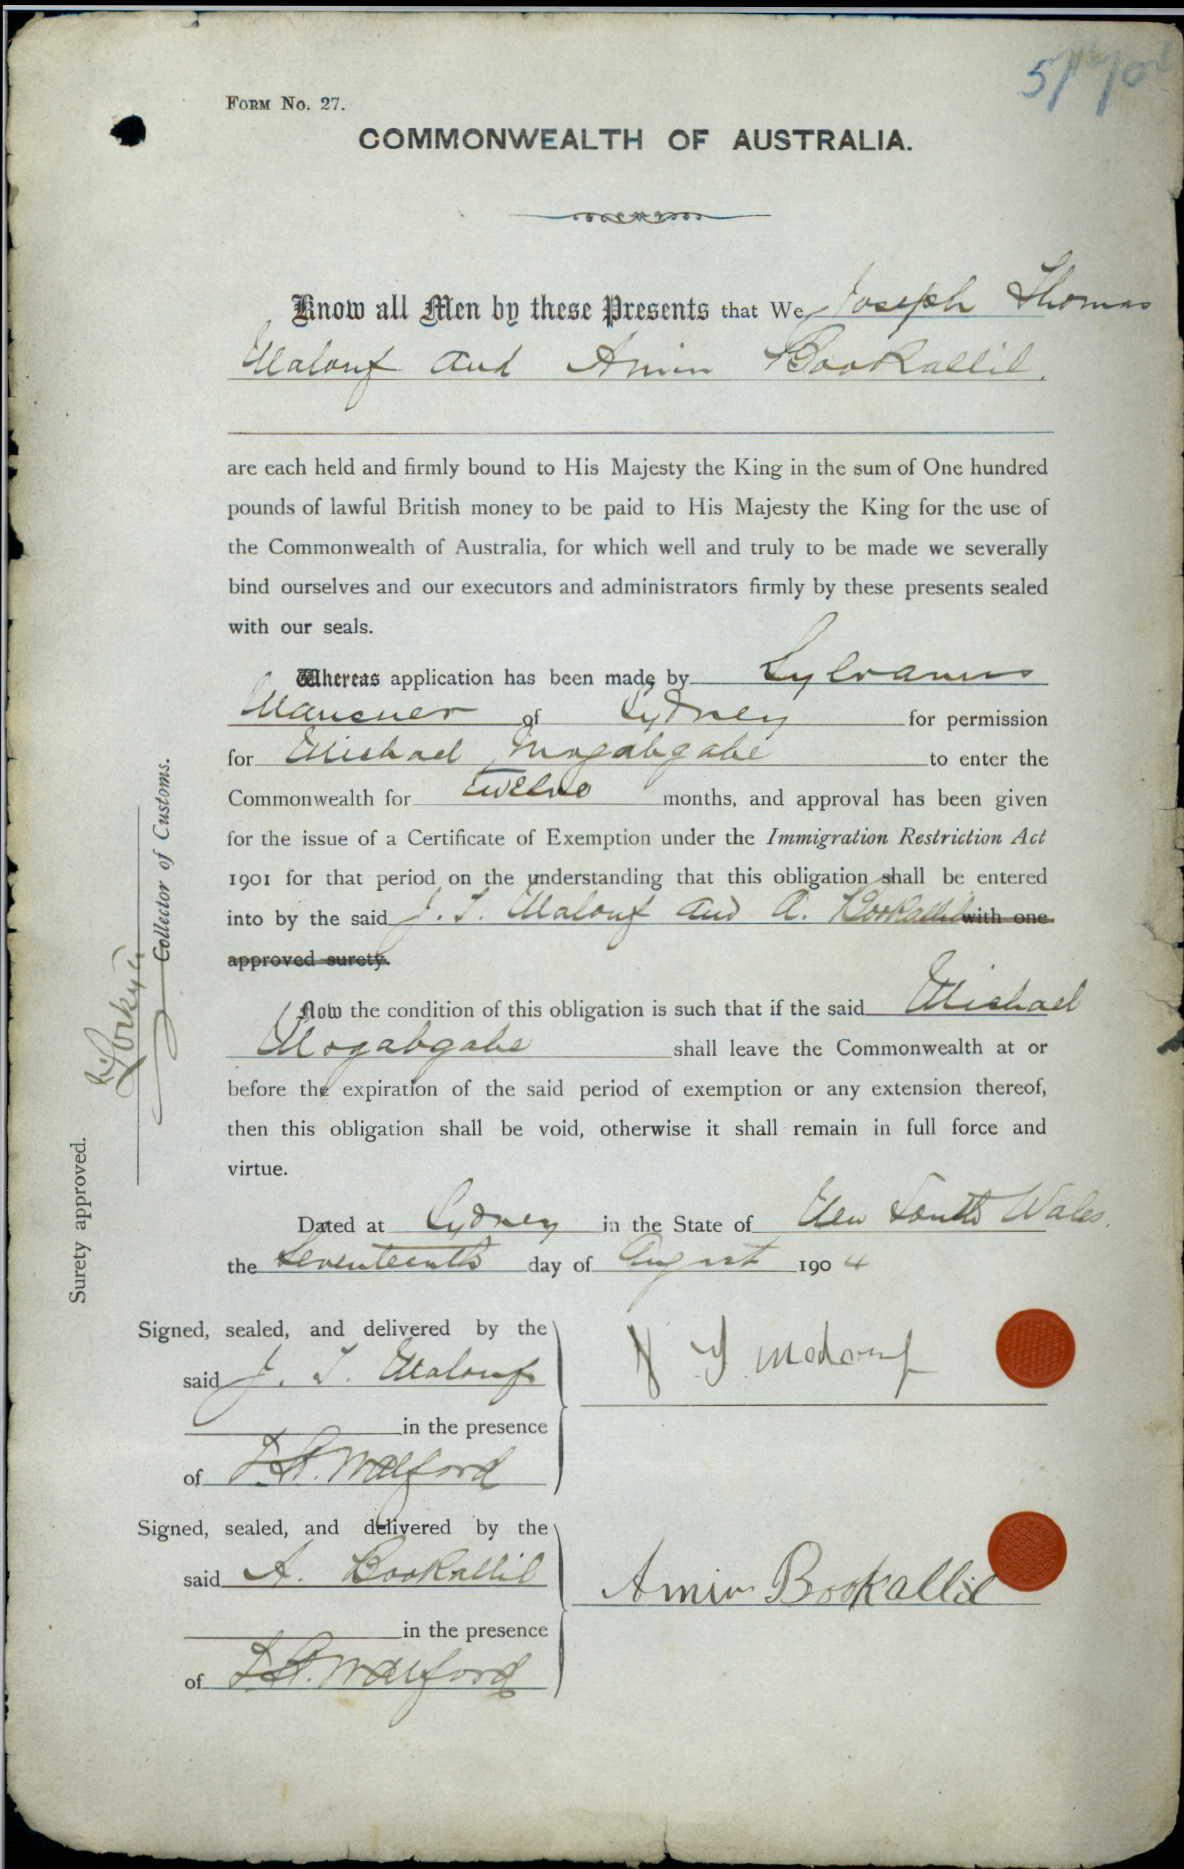 FORM No. 27.
COMMONWEALTH OF AUSTRALIA.
Know all Men by these Presents that We Joseph Thomas
Malouf and Amin Bookallil.
are each held and firmly bound to His Majesty the King in the sum of One hundred
pounds of lawful British money to be paid to His Majesty the King for the use of
the Commonwealth of Australia, for which well and truly to be made we severally
bind ourselves and our executors and administrators firmly by these presents sealed
with our seals.
Whereas application has been made by Sylvanus
of Sydney for permission
for Michael Mogabgabe to enter the
Commonwealth for twelve months, and approval has been given
for the issue of a Certificate of Exemption under the Immigration Restriction Act
1901 for that period on the understanding that this obligation shall be entered
into by the said J. T. Malouf and A. Bookallil with one
approved surety.
Now the condition of this obligation is such that if the said Michael
Mogabgabe shall leave the Commonwealth at or
before the expiration of the said period of exemption or any extension thereof,
then this obligation shall be void, otherwise it shall remain in full force and
virtue.
Dated at Sydney in the State of New South Wales.
the Seventeenth day of August 1904
Signed, sealed, and delivered by the
said J. T. Malouf
in the presence
of
J T Malouf
Signed, sealed, and delivered by the
said A. Bookallil
in the presence
of
Amin Bookallil
Surety approved.
Collector of Customs.